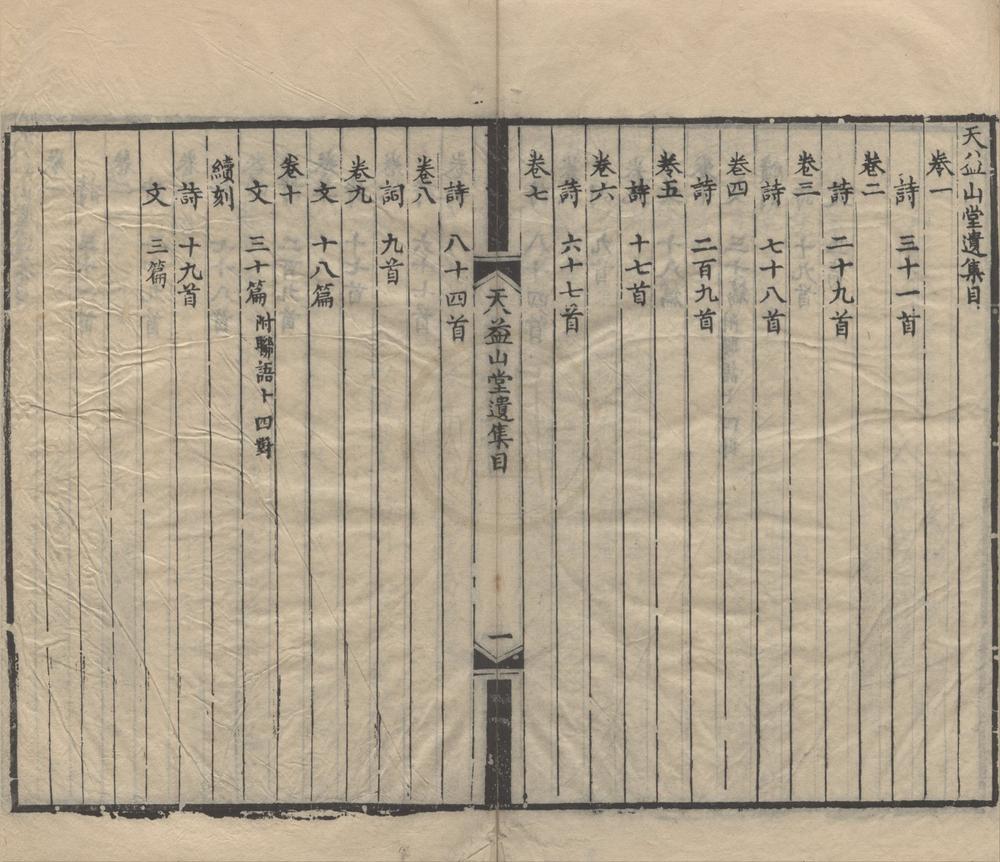 天益山堂遺集目
卷一
詩 三十一首
卷二
詩 二十九首
卷三
詩 七十八首
卷四
詩 二百九首
卷五
詩 十七首
卷六
詩 六十七首
卷七
天益山堂遺集目 一
詩 八十四首
卷八
詞 九首
卷九
文 十八篇
卷十
文 三十篇 附聯語十四對
續刻
詩 十九首
文 三篇